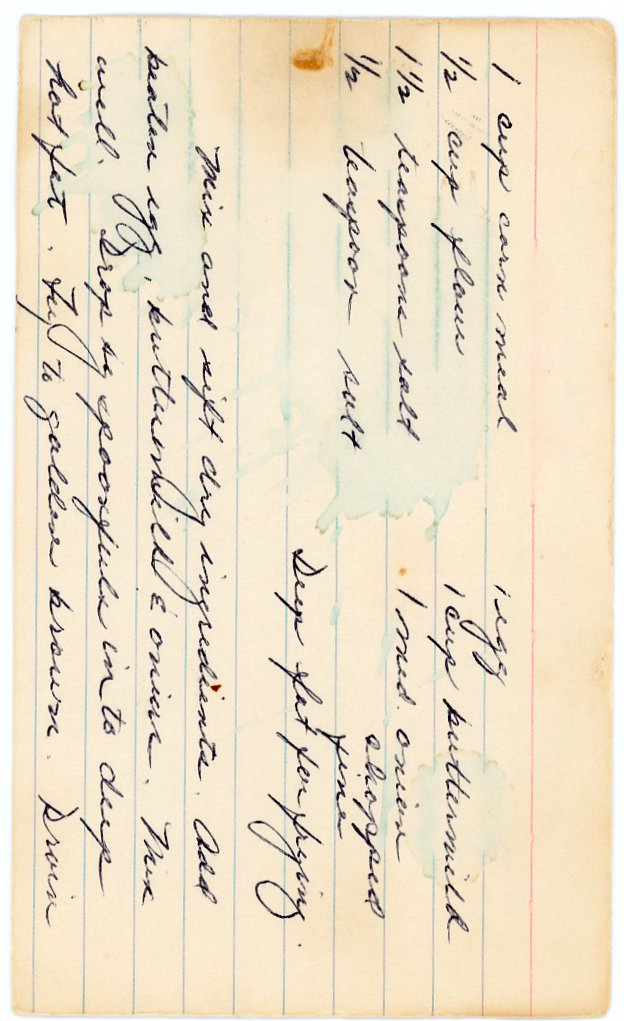 1 cup corn meal 1 egg
1/2 cup flour 1 cup buttermilk
1 1/2 teaspoons salt 1 med. onion
1/2 teaspoon salt chopped
fine
Deep fat for frying.
Mix and sift dry ingredients. Add
beaten egg, buttermilk & onions. Mix
well. Drop by spoonfuls in to deep
hot fat. Fry to golden brown. Drain